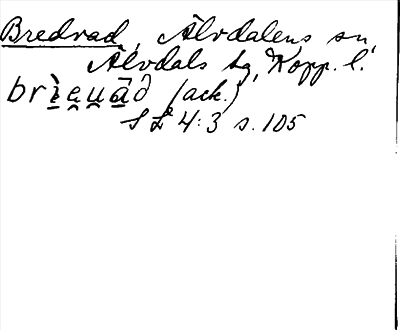 Bredvad, Älvdalens sn,
Älvdals hg, Kopp. l.
brì̱e̯u̯ā̱ð (ack.)
SL 4:3 s. 105